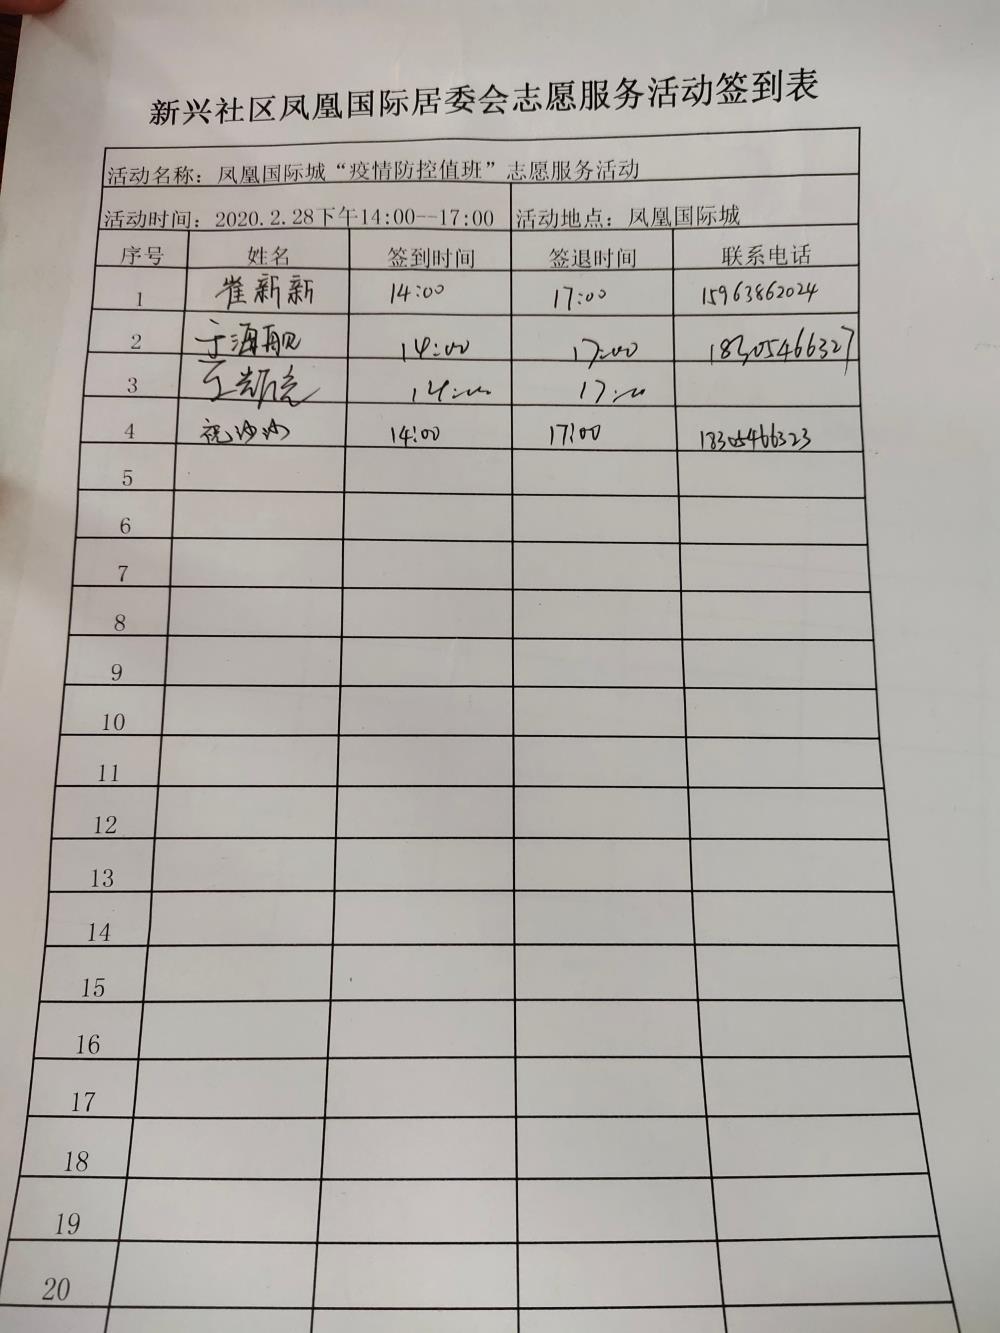 新兴社区凤凰国际居委会志愿服务活动签到表
活动名称：凤凰国际城“疫情防控值班”志愿服务活动
活动时间：2020.2.28下午14:00--17:00 活动地点：凤凰国际城
序号 姓名 签到时间 签退时间 联系电话
1 崔新新 14:00 17:00 15963862024
2 于海舰 14:00 17:00 18305466327
3 14:00 17:00
4 祝沙沙 14:00 17:00 18305466323
5
6
7
8
9
10
11
12
13
14
15
16
17
18
19
20